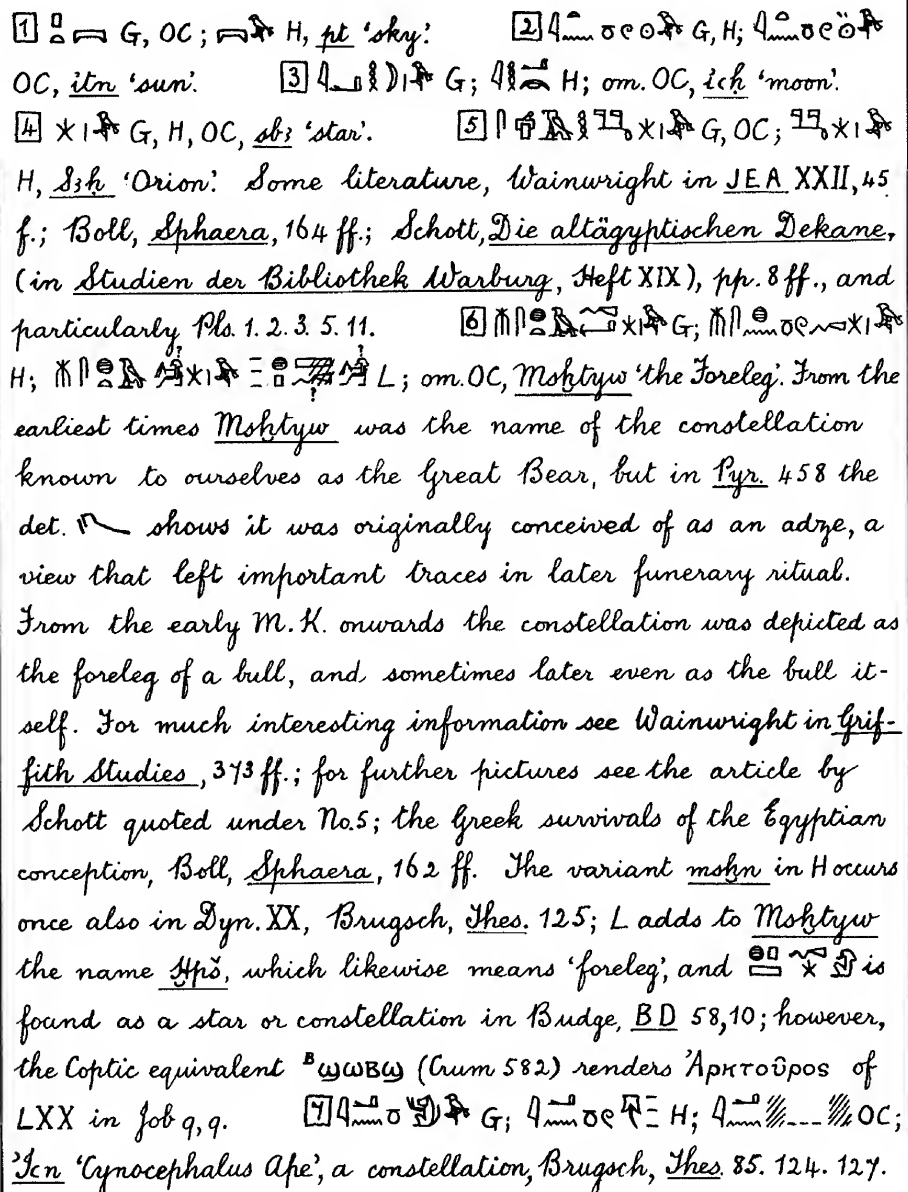 1 G, OC; H, pt ‘sky’. 2 G, H;
OC, itn ‘sun’. 3 G; H; om. OC, iꜥḥ ‘moon’.
4 G, H, OC, sbꜣ ‘star’. 5 G, OC;
H, Sꜣḥ ‘Orion’. Some literature, Wainwright in JEA XXII, 45
f.; Boll, Sphaera, 164 ff.; Schott, Die altägyptischen Dekane,
(in Studien der Bibliothek Warburg, Heft XIX), pp. 8 ff., and
particularly Pls. 1. 2. 3. 5. 11. 6 G;
H; L; om. OC, Msḫtyw ‘the Foreleg’. From the
earliest times Msḫtyw was the name of the constellation
known to ourselves as the Great Bear, but in Pyr. 458 the
det. shows it was originally conceived of as an adze, a
view that left important traces in later funerary ritual.
From the early M.K. onwards the constellation was depicted as
the foreleg of a bull, and sometimes later even as the bull it-
self. For much interesting information see Wainwright in Grif-
fith Studies, 373 ff.; for further pictures see the article by
Schott quoted under No. 5; the Greek survivals of the Egyptian
conception, Boll, Sphaera, 162 ff. The variant msḫn in H occurs
once also in Dyn. XX, Brugsch, Thes. 125; L adds to Msḫtyw
the name Ḫpš, which likewise means ‘foreleg’, and is
found as a star or constellation in Budge, BD 58,10; however,
the Coptic equivalent ᴮϣⲱⲃϣ (Crum 582) renders Ἀρκτοῦρος of
LXX in Job 9, 9. 7 G; H; OC;
ꞽꜥn ‘Cynocephalus Ape’, a constellation, Brugsch, Thes. 85. 124. 127.